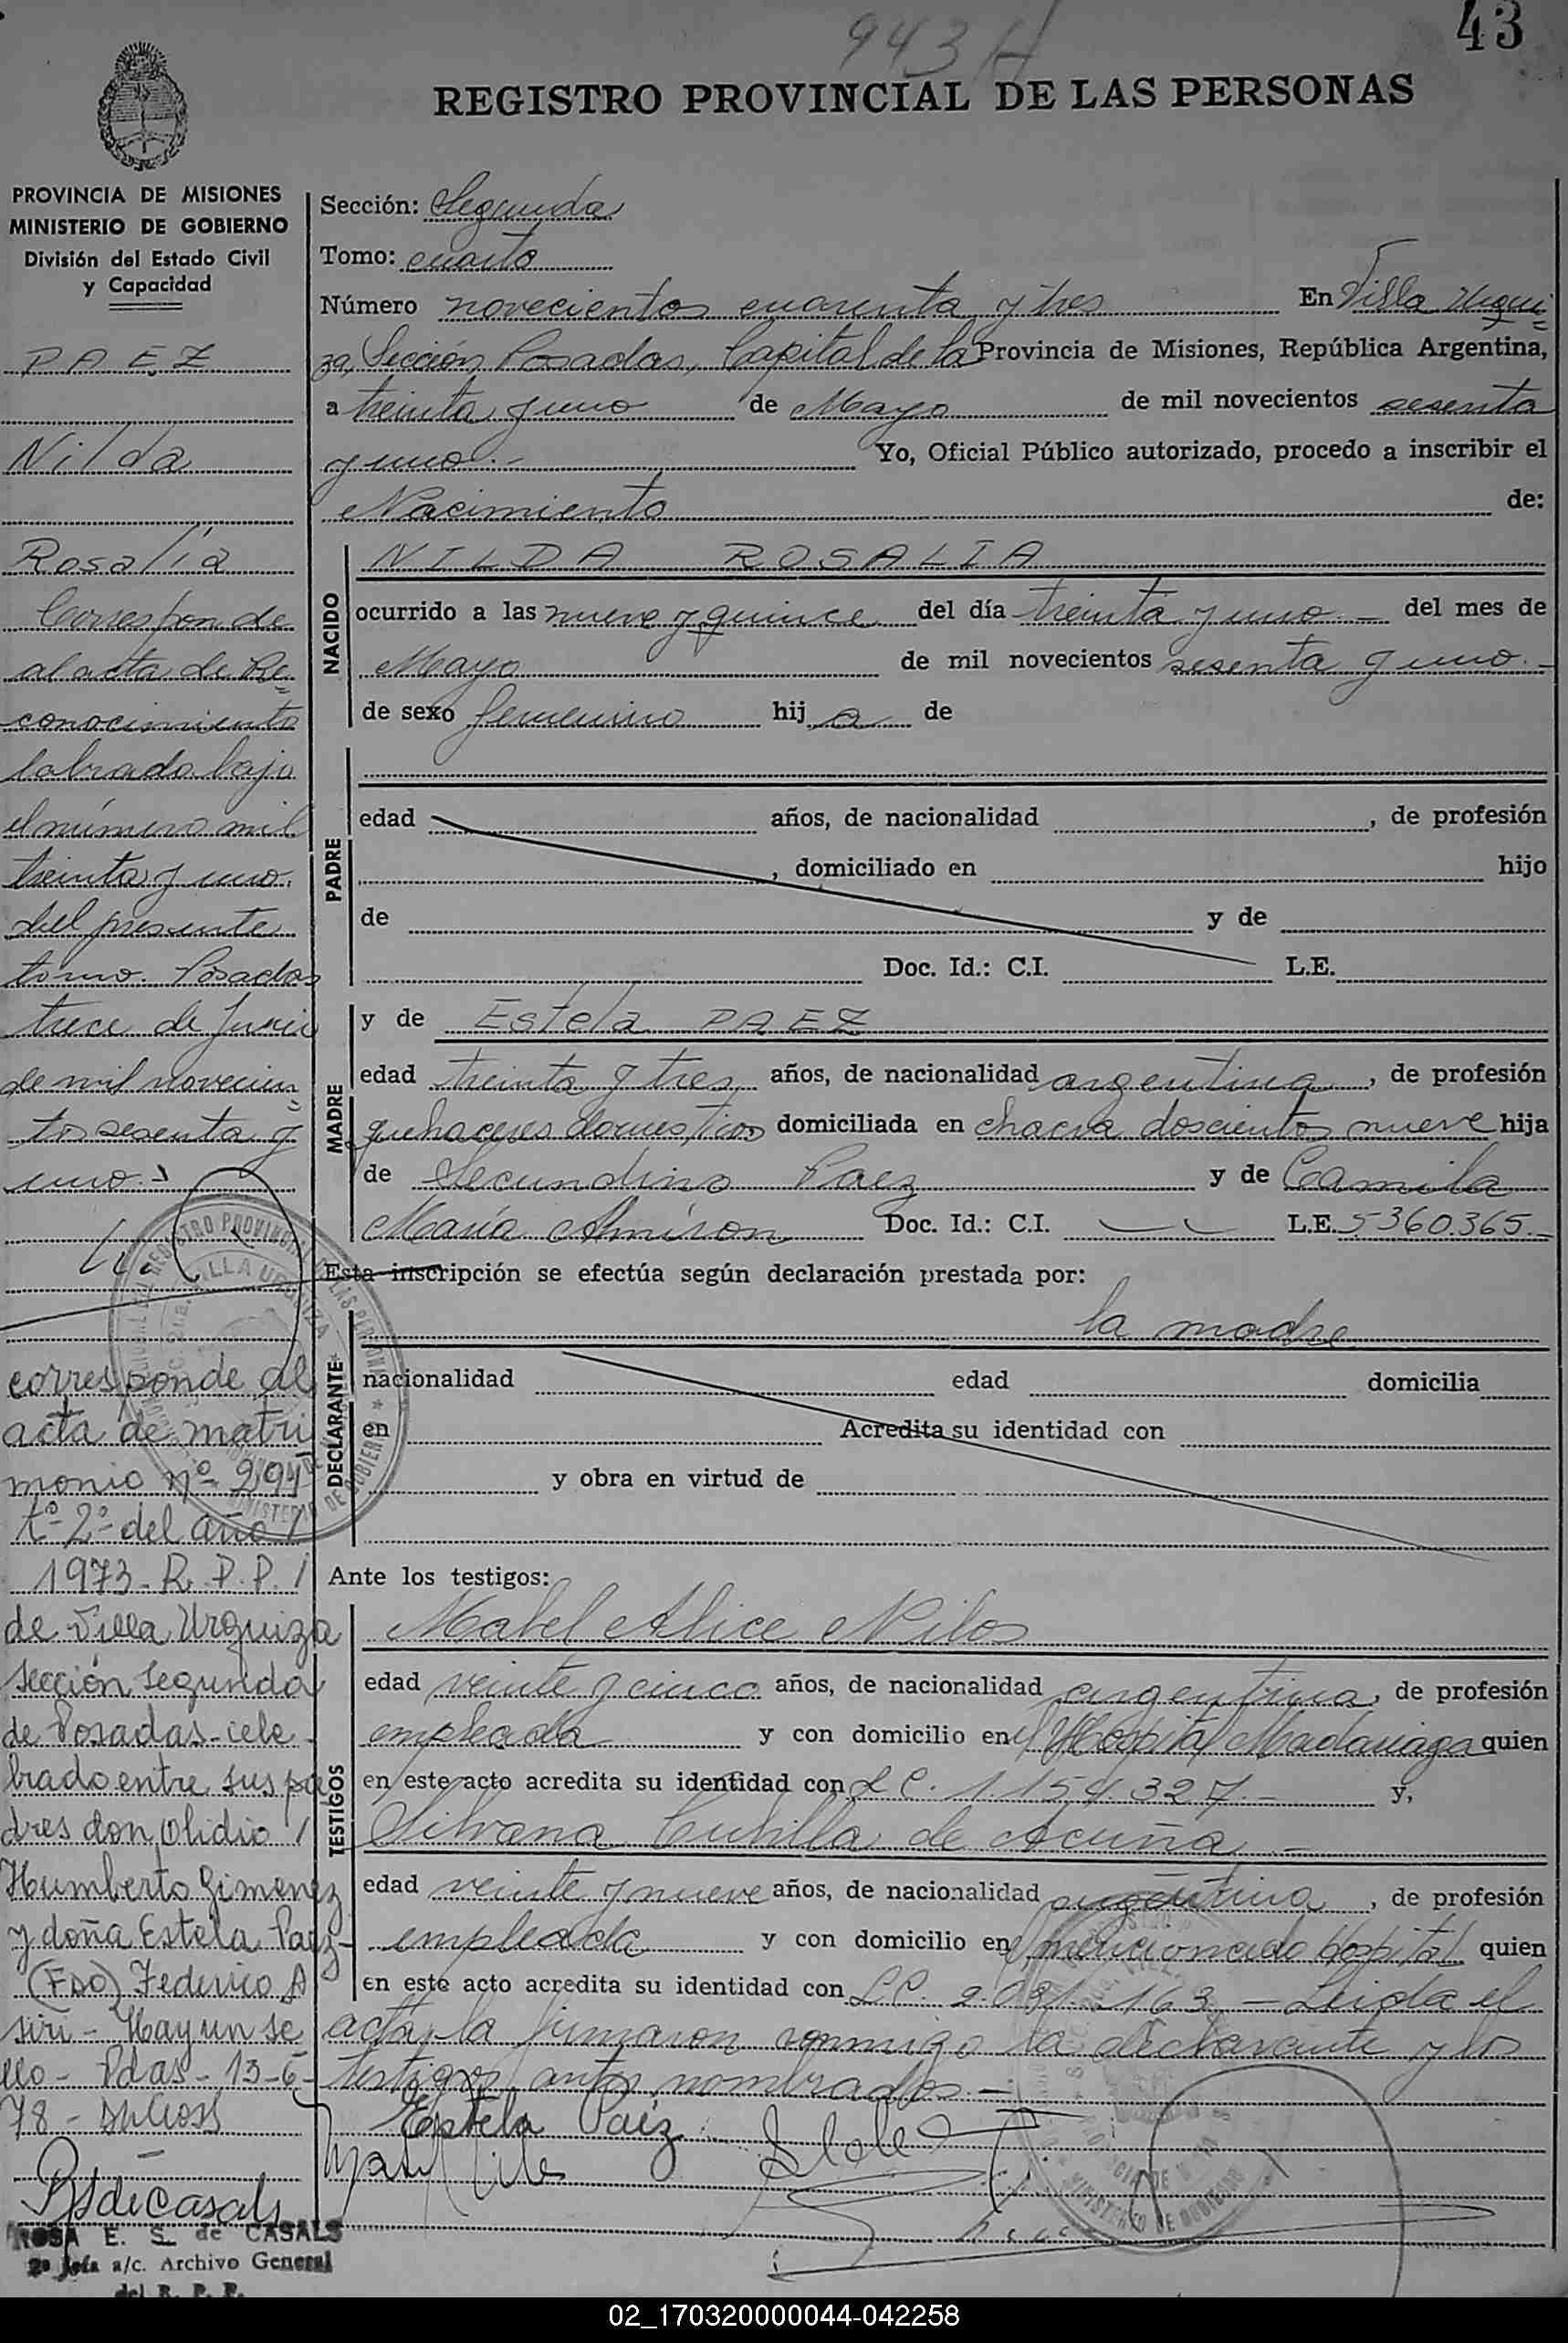 943 H
43
REGISTRO PROVINCIAL DE LAS PERSONAS
PROVINCIA DE MISIONES
MINISTERIO DE GOBIERNO
División del Estado Civil
y Capacidad
PAEZ
Nilda
Rosalía
Corresponde
al acta de Re=
conocimiento
labrado bajo
el número mil
treinta y uno.
del presente
tomo. Posadas
trece de Junio
de mil novecien=
tos sesenta y
uno.-
corresponde al
acta de matri
monio nº 294
tº 2º del año /
1973- R.P.P. /
de Villa Urquiza
sección segunda
de Posadas- cele-
brado entre sus pa
dres don Olidio /
Humberto Gimenez
y doña Estela Paez-
(FDO) Federico A
siri - Hay un se
llo - Pdas - 13-6-
78 -
ROSA E. S. de CASALS
2º Jefa a/c. Archivo General
del R. P. P.
Sección: Segunda
Tomo: cuarto
Número novecientos cuarenta y tres En Villa Urqui=
za, Sección Posadas, Capital de la Provincia de Misiones, República Argentina,
a treinta y uno de Mayo de mil novecientos sesenta
y uno.- Yo, Oficial Público autorizado, procedo a inscribir el
Nacimiento de:
NACIDO
NILDA ROSALIA
ocurrido a las nueve y quince del día treinta y uno.- del mes de
Mayo de mil novecientos sesenta y uno.-
de sexo femenino hij a de
PADRE
edad años, de nacionalidad , de profesión
, domiciliado en hijo
de y de
Doc. Id.: C.I. L.E.
MADRE
y de Estela PAEZ
edad treinta y tres años, de nacionalidad argentina, de profesión
quehaceres domésticos domiciliada en chacra doscientos nueve hija
de Secundino Paez y de Camila
María Almiron Doc. Id.: C.I. L.E. 5360.365.-
Esta inscripción se efectúa según declaración prestada por:
DECLARANTE
la madre
nacionalidad edad domicilia
en Acredita su identidad con
y obra en virtud de
Ante los testigos:
TESTIGOS
Mabel Alice Nilos
edad veinte y cinco años, de nacionalidad argentina, de profesión
empleada y con domicilio en el Hospital Madariaga quien
en este acto acredita su identidad con L C. 1.154.327.- y,
Silvana Cubilla de Acuña.-
edad veinte y nueve años, de nacionalidad argentina, de profesión
empleada y con domicilio en el mencionado Hospital quien
en este acto acredita su identidad con L.C. 163.- Leida el
acta, la firmaron conmigo la declarante y los
testigos antes nombrados.-
Estela Paéz
02_170320000044-042258